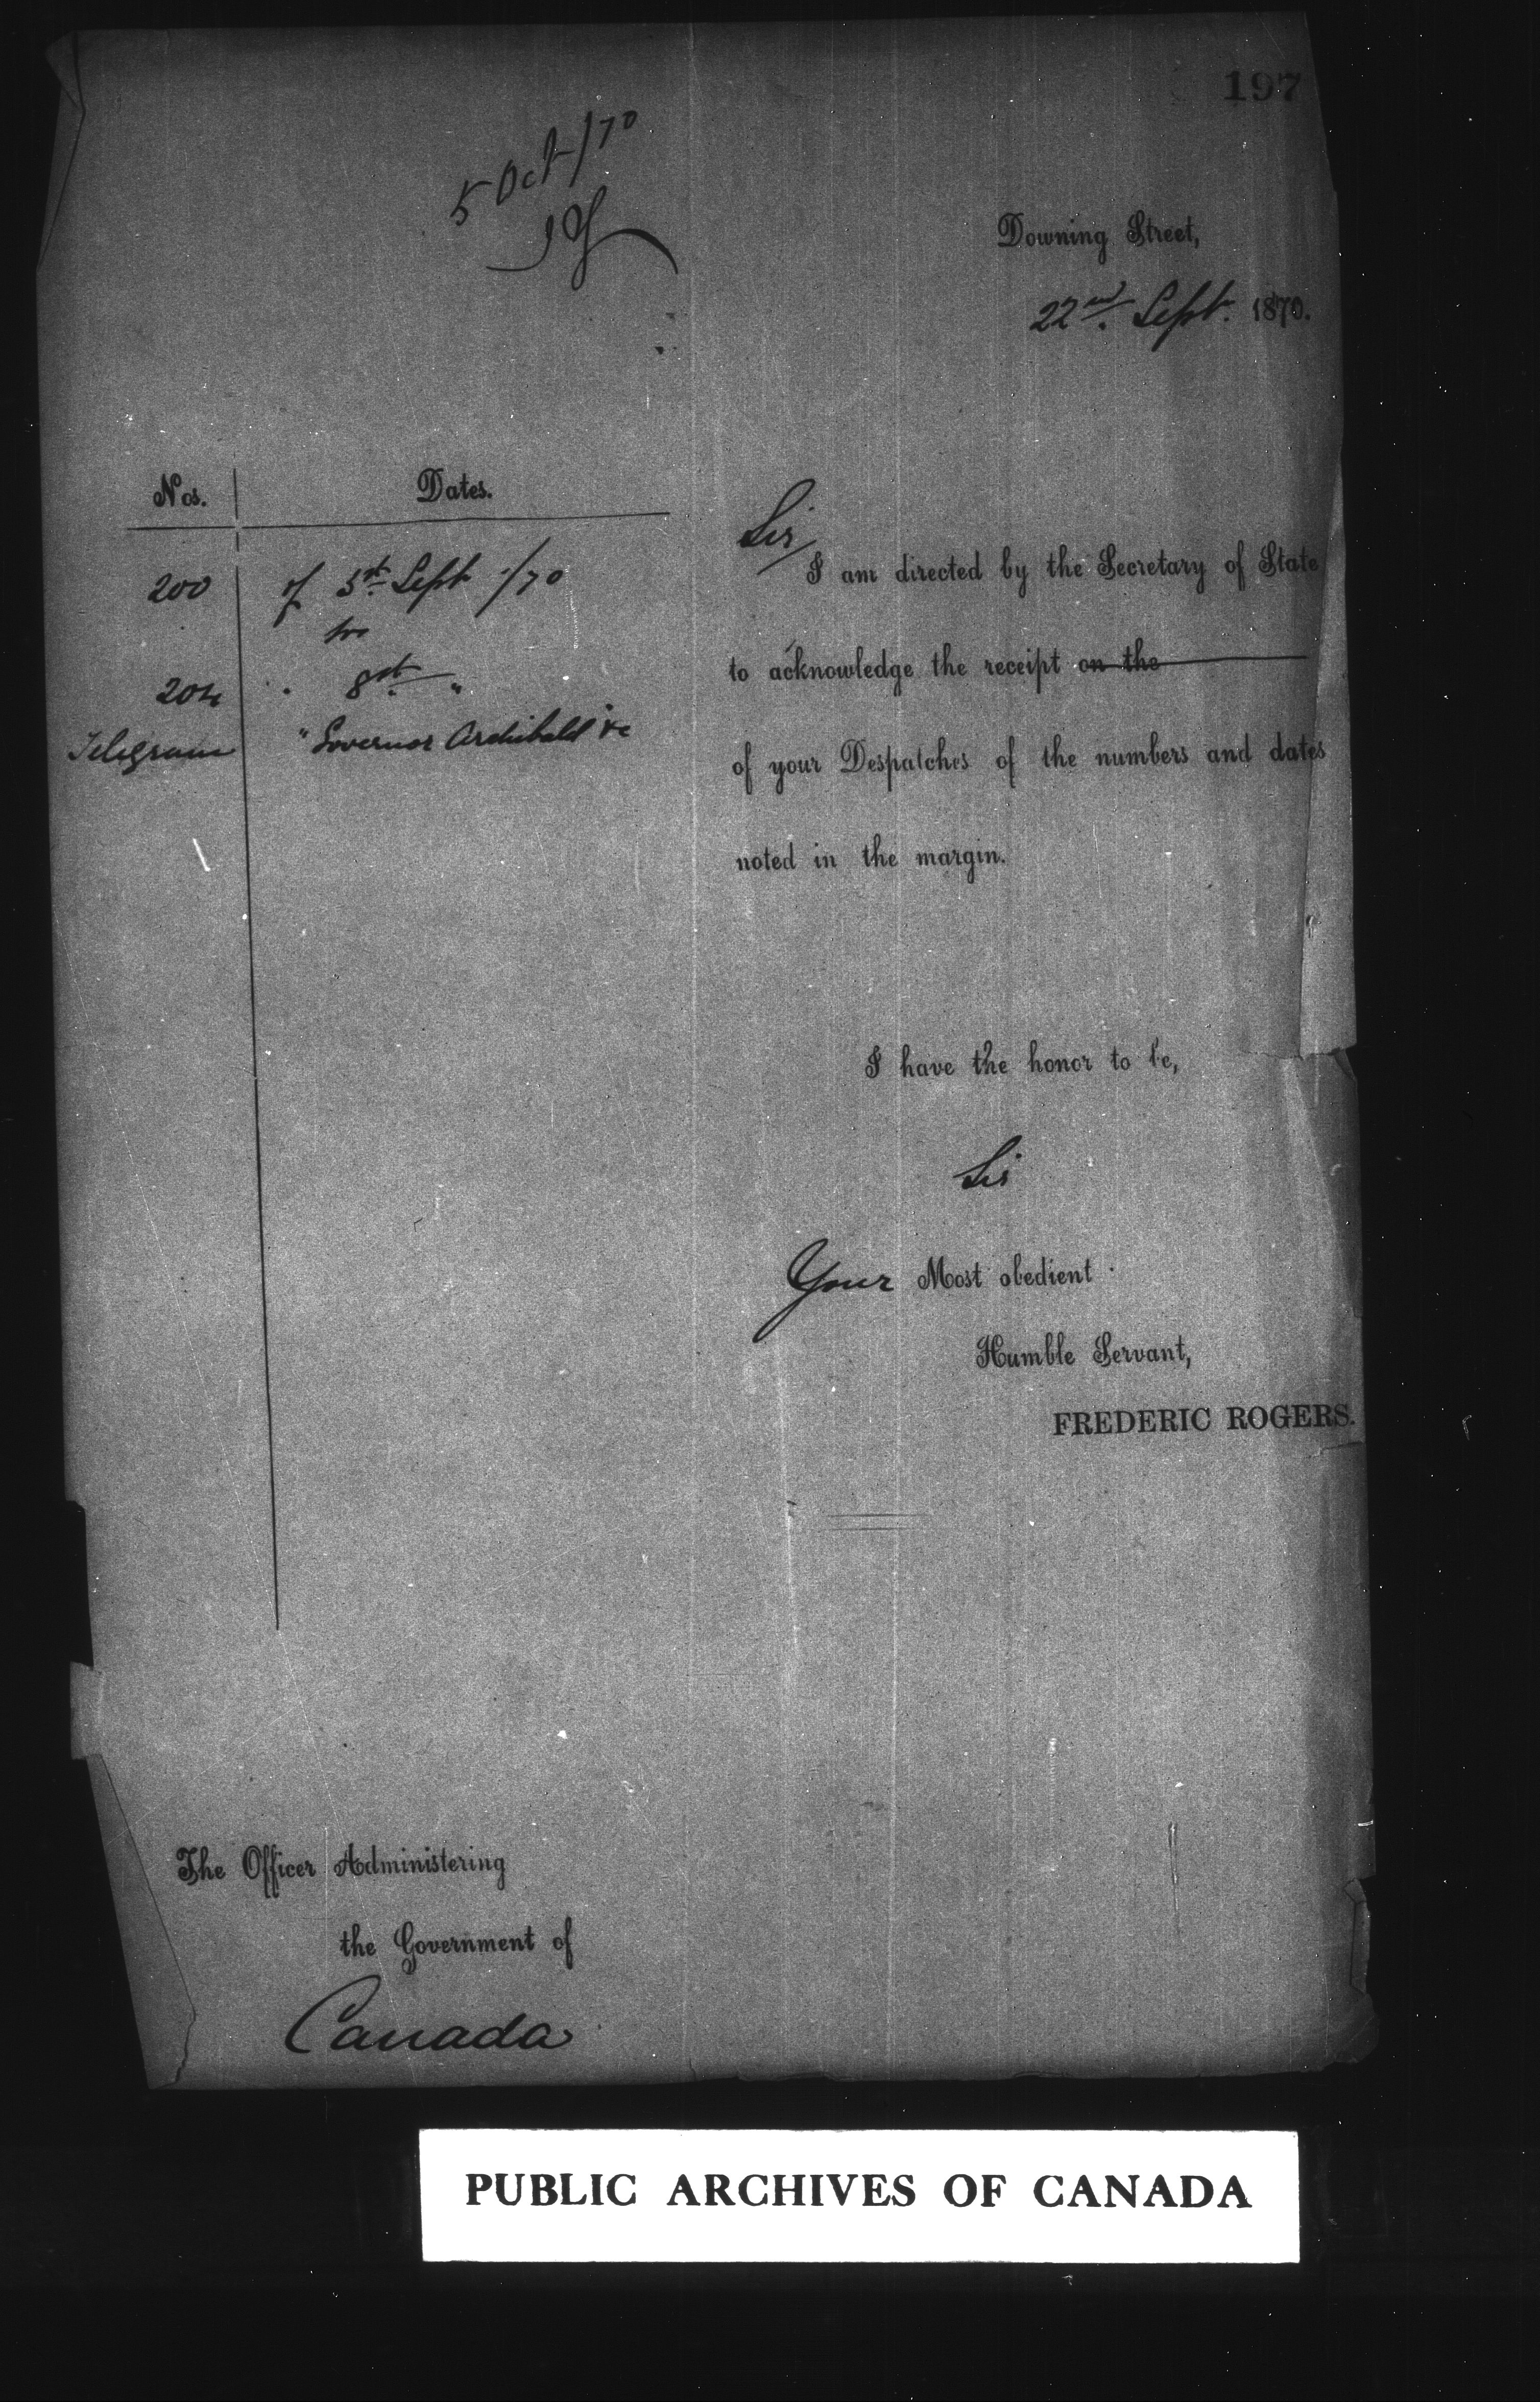 197
5 Oct /70
Downing Street,
22nd. Sept. 1870.
Nos.
Dates.
200 of 5th Sept /70
to
204 " 8th "
Telegram "Governor Archibald" &c
Sir,
I am directed by the Secretary of State
to acknowledge the receipt on the
of your Despatches of the numbers and dates
noted in the margin.
I have the honor to be,
Sir
Your Most obedient
Humble Servant,
FREDERIC ROGERS.
The Officer Administering
the Government of
Canada
PUBLIC ARCHIVES OF CANADA